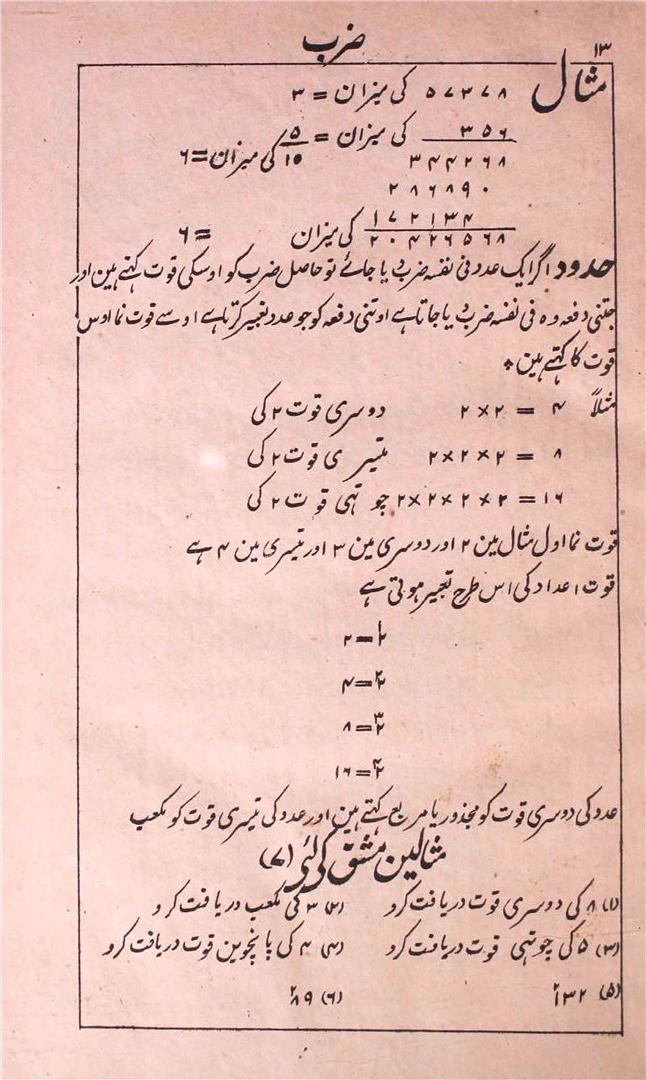 ۱۳ ضرب
مثال ۵۷۳۷۸ کی میزان = ۳
۳۵۶ کی میزان = ۵
۳۴۴۲۶۸ ۱۵ کی میزان = ۶
۲۸۶۸۹۰
۱۷۲۱۳۴
۲۰۴۲۶۵۶۸ کی میزان = ۶
حدود اگر ایک عدد فی نفسہ ضرب دیا جائے تو حاصل ضرب کو اوسکی قوت کہتے ہین اور
جتنی دفعہ وہ فی نفسہ ضرب دیا جاتا ہے اوتنی دفعہ کو جو عدد تعبیر کرتا ہے اوسے قوت نما اوس
قوت کا کہتے ہین *
مثلاً ۴ = ۲×۲ دوسری قوت ۲ کی
۸ = ۲×۲×۲ تیسری قوت ۲ کی
۱۶ = ۲×۲×۲×۲ چوتہی قوت ۲ کی
قوت نما اول مثال مین ۲ اور دوسری مین ۳ اور تیسری مین ۴ ہے
قوت اعداد کی اس طرح تعبیر ہوتی ہے
۲¹ = ۲
۲² = ۴
۲³ = ۸
۲⁴ = ۱۶
عدد کی دوسری قوت کو مجذور یا مربع کہتے ہین اور عدد کی تیسری قوت کو مکعب
مثالین مشق کی لئی (۷)
(۱) ۸ کی دوسری قوت دریافت کرو (۲) ۳ کی مکعب دریافت کرو
(۳) ۵ کی چوتہی قوت دریافت کرو (۴) ۴ کی پانچوین قوت دریافت کرو
(۵) ۱۳۲² (۶) ۸۹²